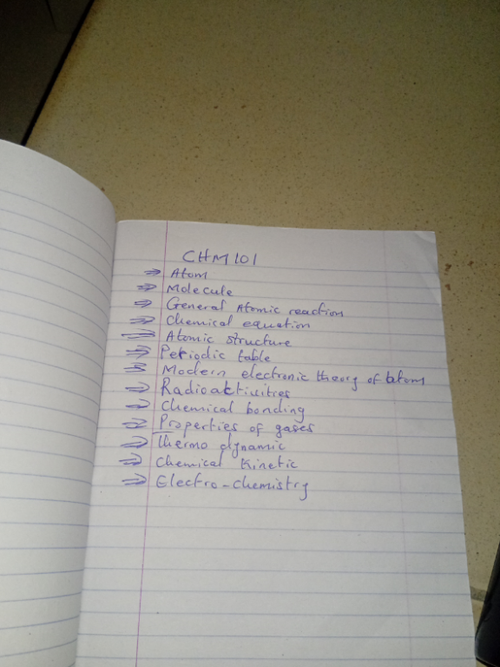 CHM101
⇒ Atom
⇒ Molecule
⇒ General Atomic reaction
⇒ Chemical equation
⇒ Atomic structure
⇒ Periodic table
⇒ Modern electronic theory of atom
⇒ Radioaktivities
⇒ Chemical bonding
⇒ Properties of gases
⇒ Thermo dynamic
⇒ Chemical Kinetic
⇒ Electro-chemistry